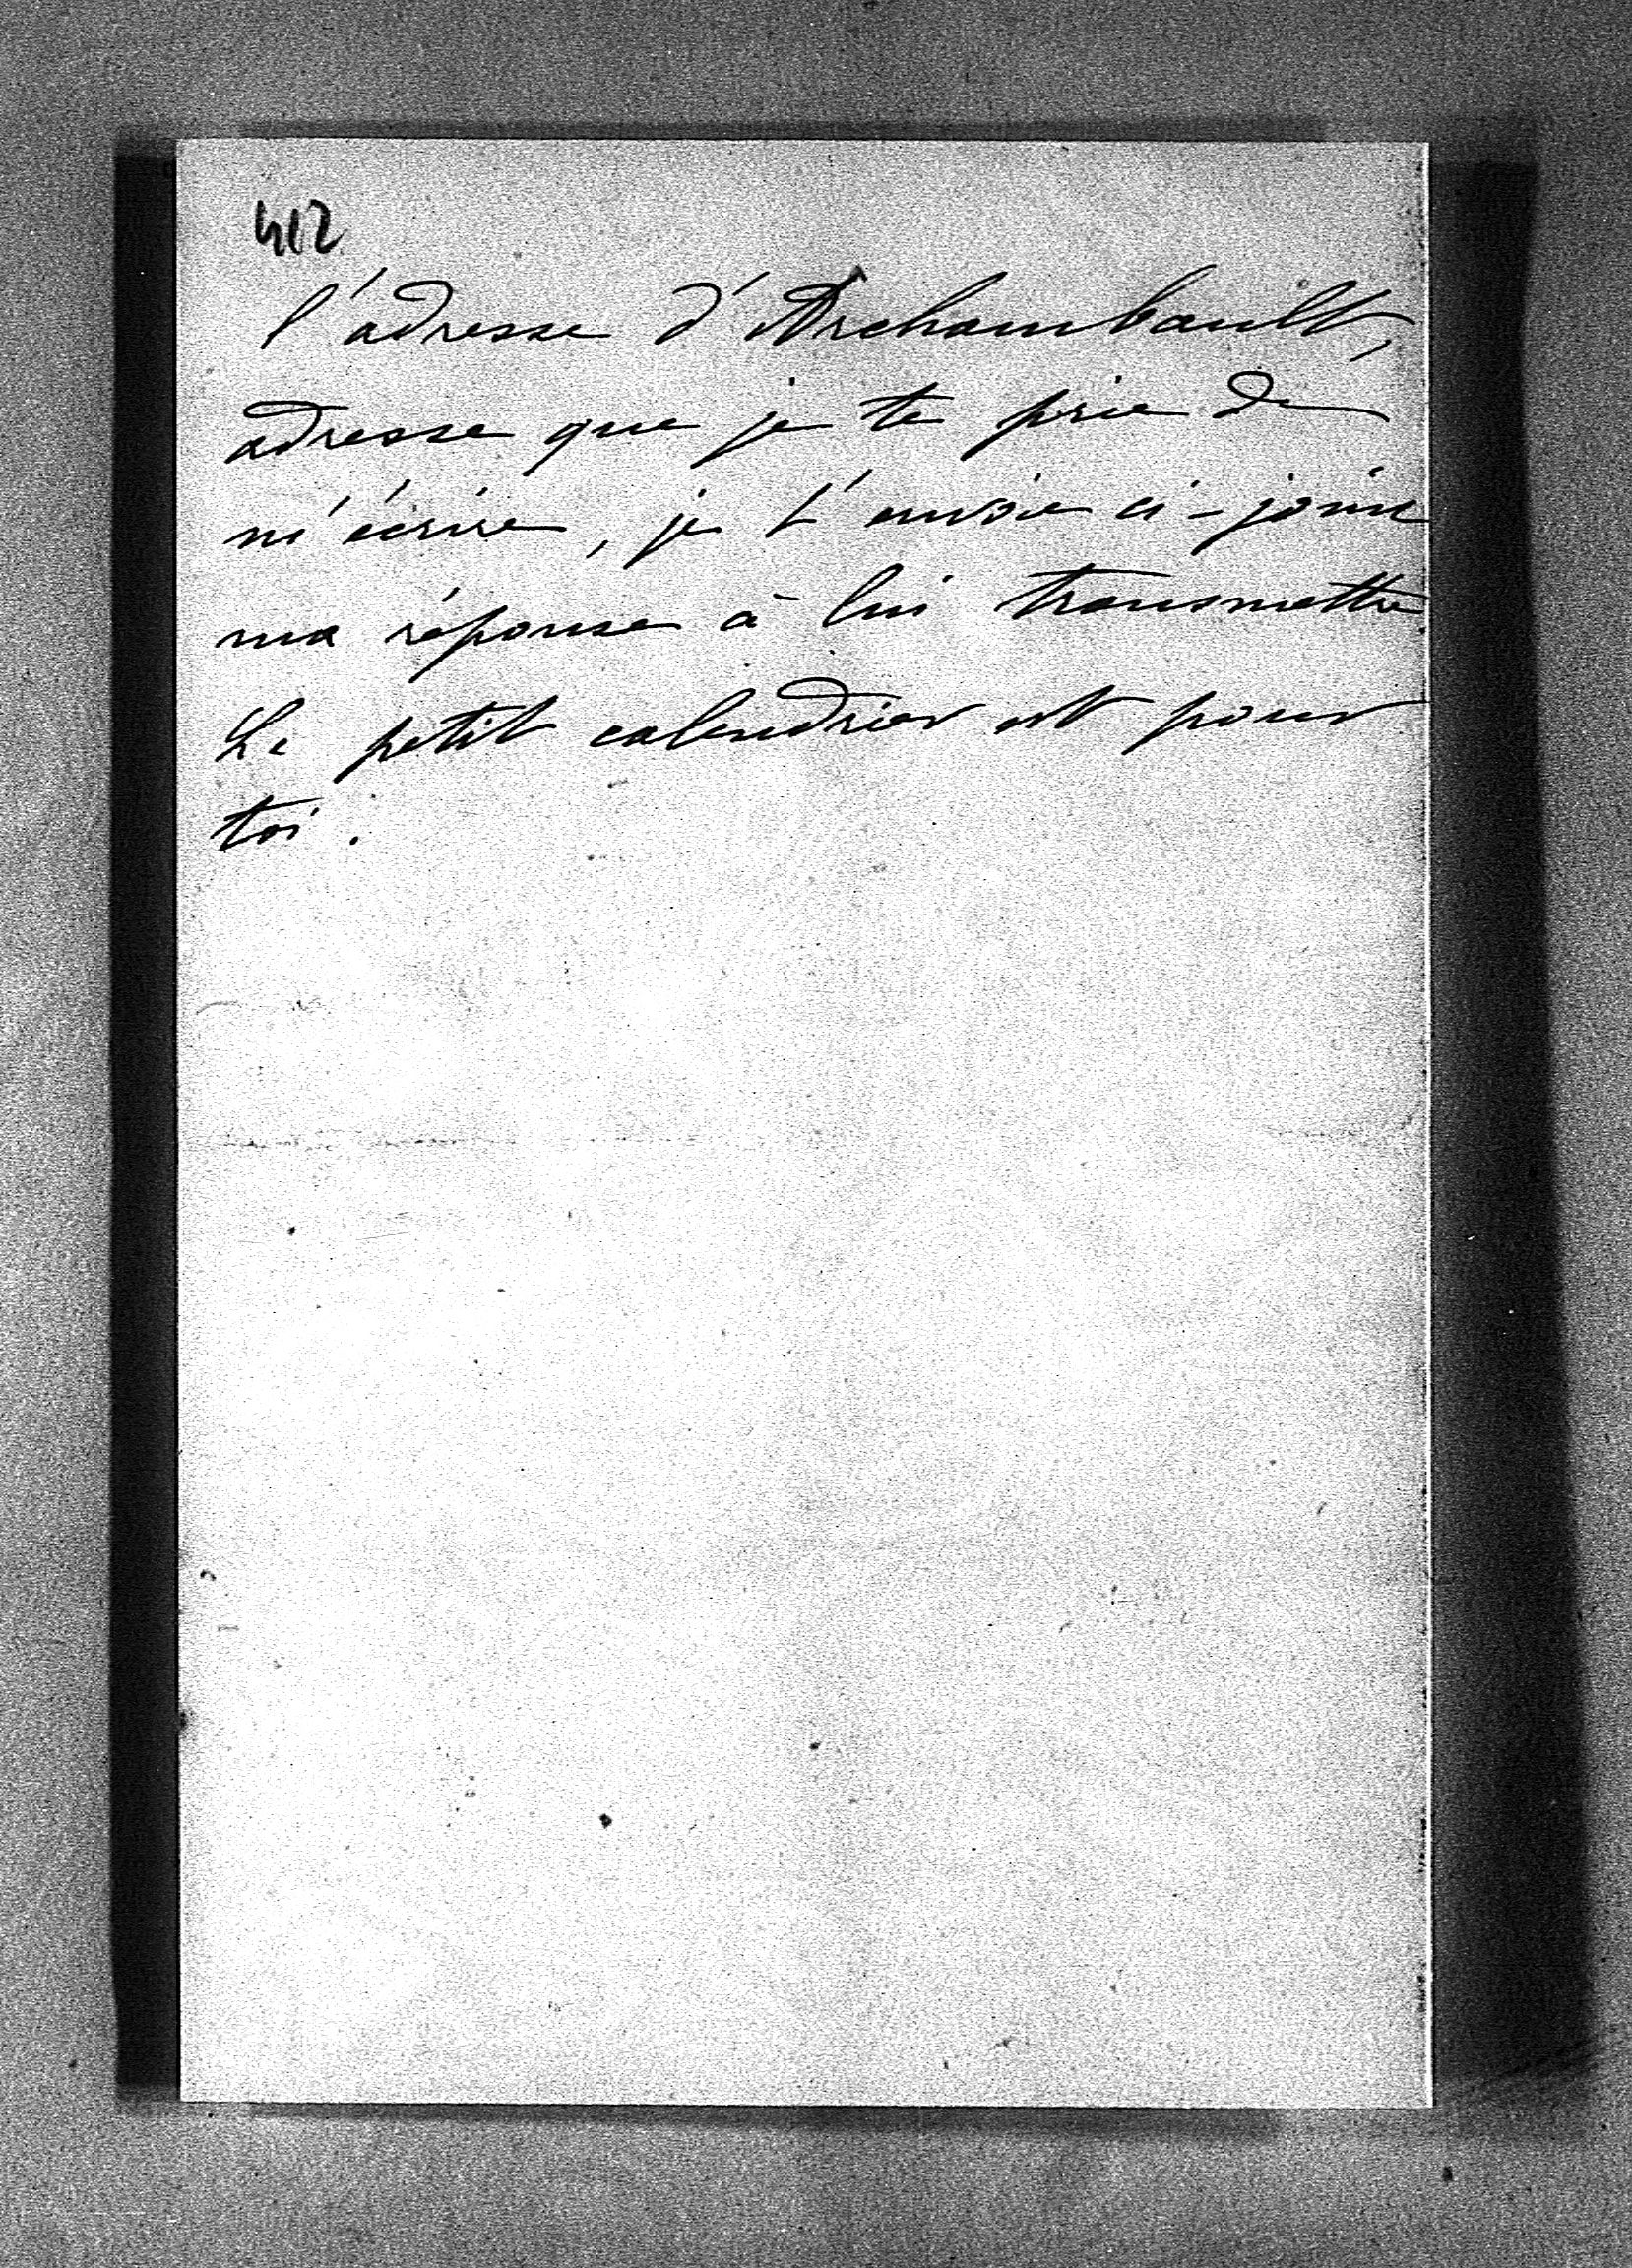 412
l'adresse d'Archambault,
adresse que je te prie de
m'écrire, je t'envoie ci-joint
ma réponse à lui transmettre.
Le petit calendrier est pour
toi.